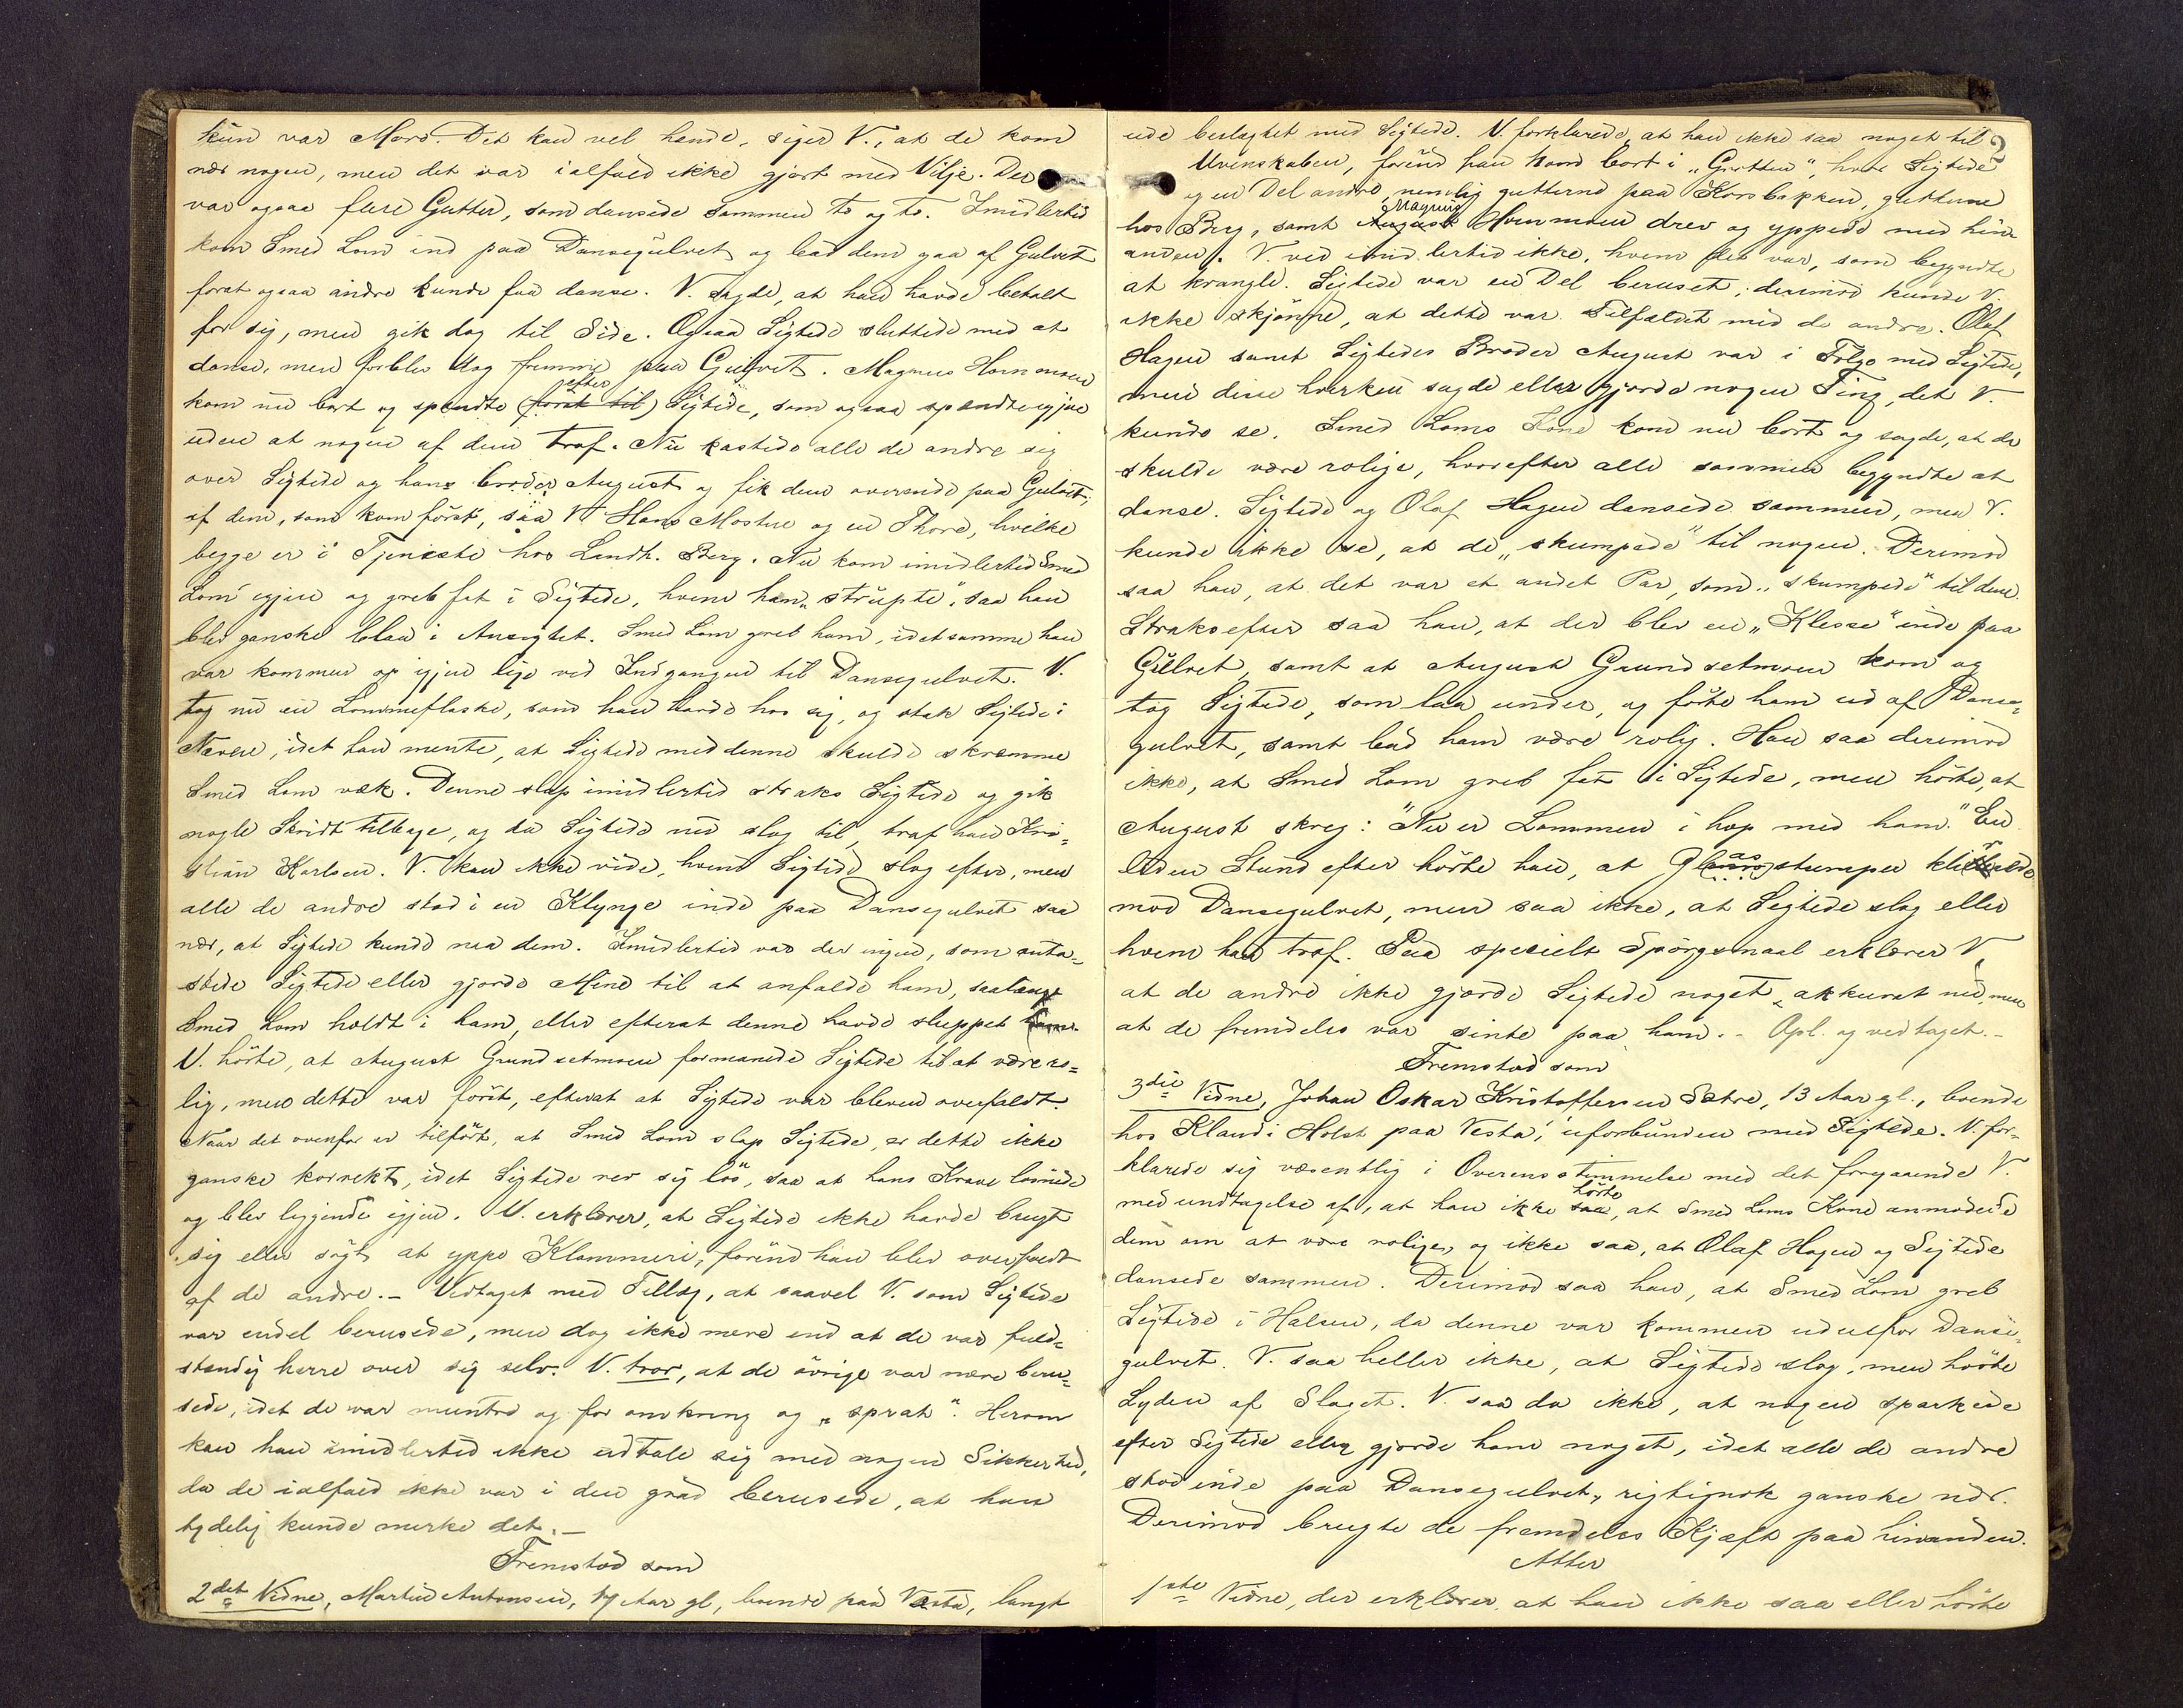 kun var Moro. Det kan vel hende, siger V., at de kom
nær nogen, men det var ialfald ikke gjort med Vilje. Der
var ogsaa flere Gutter, som dansede sammen to og to. Imidlertid
kom Smed Lom ind paa Dansegulvet og bad dem gaa af Gulvet
forat ogsaa andre kunde faa danse. V. sagde, at han havde betalt
for sig, men gik dog til Side. Ogsaa Sigtede sluttede med at
danse, men forblev dog fremme paa Gulvet. Magnus Hornmoen
kom nu bort og spendte (först til) efter Sigtede, som ogsaa spendte igjen
uden at nogen af dem traf. Nu kastede alle de andre sig
over Sigtede og hans broder August og fik dem overende paa Gulvet;
af dem, som kom först, saa V. Hans Mostue og en Thore, hvilke
begge er i Tjeneste hos Lendm. Berg. Nu kom imidlertid Smed
Lom igjen og greb fat i Sigtede, hvem han „strupte“, saa han
blev ganske blaa i Ansigtet. Smed Lom greb ham, idetsamme han
var kommen op igjen lige ved Indgangen til Dansegulvet. V.
tog nu en Lommeflaske, som han havde hos sig, og stak Sigtede i
Næven, idet han mente, at Sigtede med denne skulde skræmme
Smed Lom væk. Denne slap imidlertid straks Sigtede og gik
nogle Skridt tilbage, og da Sigtede nu slog til, traf han Kri-
stian Karlsen. V. kan ikke vide, hvem Sigtede slog efter, men
alle de andre stod i en Klynge inde paa Dansegulvet saa
nær, at Sigtede kunde naa dem. Imidlertid var der ingen, som anta-
stede Sigtede eller gjorde Mine til at anfalde ham, saalænge
Smed Lom holdt i ham, eller efterat denne havde sluppet ham.
V. hörte, at August Grundsetmoen formanede Sigtede til at være ro-
lig, men dette var först, efterat at Sigtede var bleven overfaldt.
Naar det ovenfor er tilfört, at Smed Lom slap Sigtede, er dette ikke
ganske korrekt, idet Sigtede rev sig lös, saa at hans Krave losnede
og blev liggende igjen. V. erklærer, at Sigtede ikke havde brugt
sig eller sögt at yppe Klammeri, forend han blev overfaldt
af de andre. – Vedtaget med Tillæg, at saavel V. som Sigtede
var endel berusede, men dog ikke mere end at de var fuld-
stændig herre over sig selv. V. tror, at de övrige var mere beru-
sede, idet de var muntre og for omkring og „sprat“. Herom
kan han imidlertid ikke udtale sig med nogen Sikkerhed,
da de ialfald ikke var i den grad berusede, at han
tydelig kunde merke det. –
Fremstod som
2det Vidne, Martin Antonsen, 17 Aar gl., boende paa Vesta, langt
2
ude beslegtet med Sigtede. V. forklarede, at han ikke saa noget til
Uvenskaben, forend han kom bort i „Grotten“, hvor Sigtede
og en Del andre, nemlig gutterne paa Korsbakken, gutterne
hos Berg, samt August Magnus Hornmoen drev og yppede med hin-
anden. V. ved imidlertid ikke, hvem det var, som begyndte
at krangle. Sigtede var en Del beruset; derimod kunde V.
ikke skjönne, at dette var Tilfældet med de andre. Olaf
Hagen samt Sigtedes Broder August var i Fölge med Sigtede,
men disse hverken sagde eller gjorde nogen Ting, det V.
kunde se. Smed Loms Kone kom nu bort og sagde, at de
skulde være rolige, hvorefter alle sammen begyndte at
danse. Sigtede og Olaf Hagen dansede sammen, men V.
kunde ikke se, at de „skumpede“ til nogen. Derimod
saa han, at det var et andet Par, som „skumpede“ til dem.
Straks efter saa han, at der blev en „Klesse“ inde paa
Gulvet, samt at August Grundsetmoen kom og
tog Sigtede, som laa under, og förte ham ud af Danse-
gulvet, samt bad ham være rolig. Han saa derimod
ikke, at Smed Lom greb fat i Sigtede, men hörte, at
August skreg: "Nu er Lommen i hop med ham." En
liden Stund efter hörte han, at Glasstumper klirrede
mod Dansegulvet, men saa ikke, at Sigtede slog eller
hvem han traf. Paa specielt Spörgsmaal erklærer V.
at de andre ikke gjorde Sigtede noget „akkurat nu“, men
at de fremdeles var sinte paa ham. – Opl. og vedtaget. –
Fremstod som
3die Vidne, Johan Oskar Kristoffersen Sætre, 13 Aar gl., boende
hos Klandi Holst paa Vesta, uforbunden med Sigtede. V. for-
klarede sig væsentlig i Overensstemmelse med det foregaaende V.
med undtagelse af, at han ikke saa hörte, at Smed Loms Kone anmodede
dem om at være rolige, og ikke saa, at Olaf Hagen og Sigtede
dansede sammen. Derimod saa han, at Smed Lom greb
Sigtede i Halsen, da denne var kommen udenfor Danse-
gulvet. V. saa heller ikke, at Sigtede slog, men hörte
Lyden af Slaget. V. saa da ikke, at nogen sparkede
efter Sigtede eller gjorde ham noget, idet alle de andre
stod inde paa Dansegulvet, rigtignok ganske nær.
Derimod brugte de fremdeles Kjæft paa hinanden.
Atter
1ste Vidne, der erklærer, at han ikke saa eller hörte